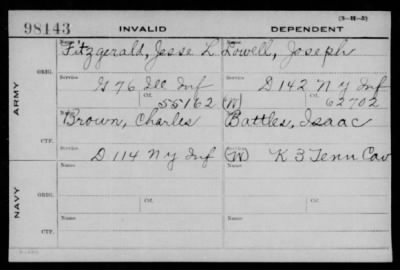 (3-H-5)
98143 INVALID DEPENDENT
ARMY
ORIG.
Name Name
Fitzgerald, Jesse L. Lowell, Joseph
Service Service
G 76 Inf D 142 N Y Inf
Ctf. Ctf.
55162 (W) 62702
CTF.
Brown, Charles Battles, Isaac
D 114 N Y Inf (W) K 3 Tenn Cav
NAVY
ORIG.
Service Ctf. Service Ctf.
Name Name
CTF.
Service Service